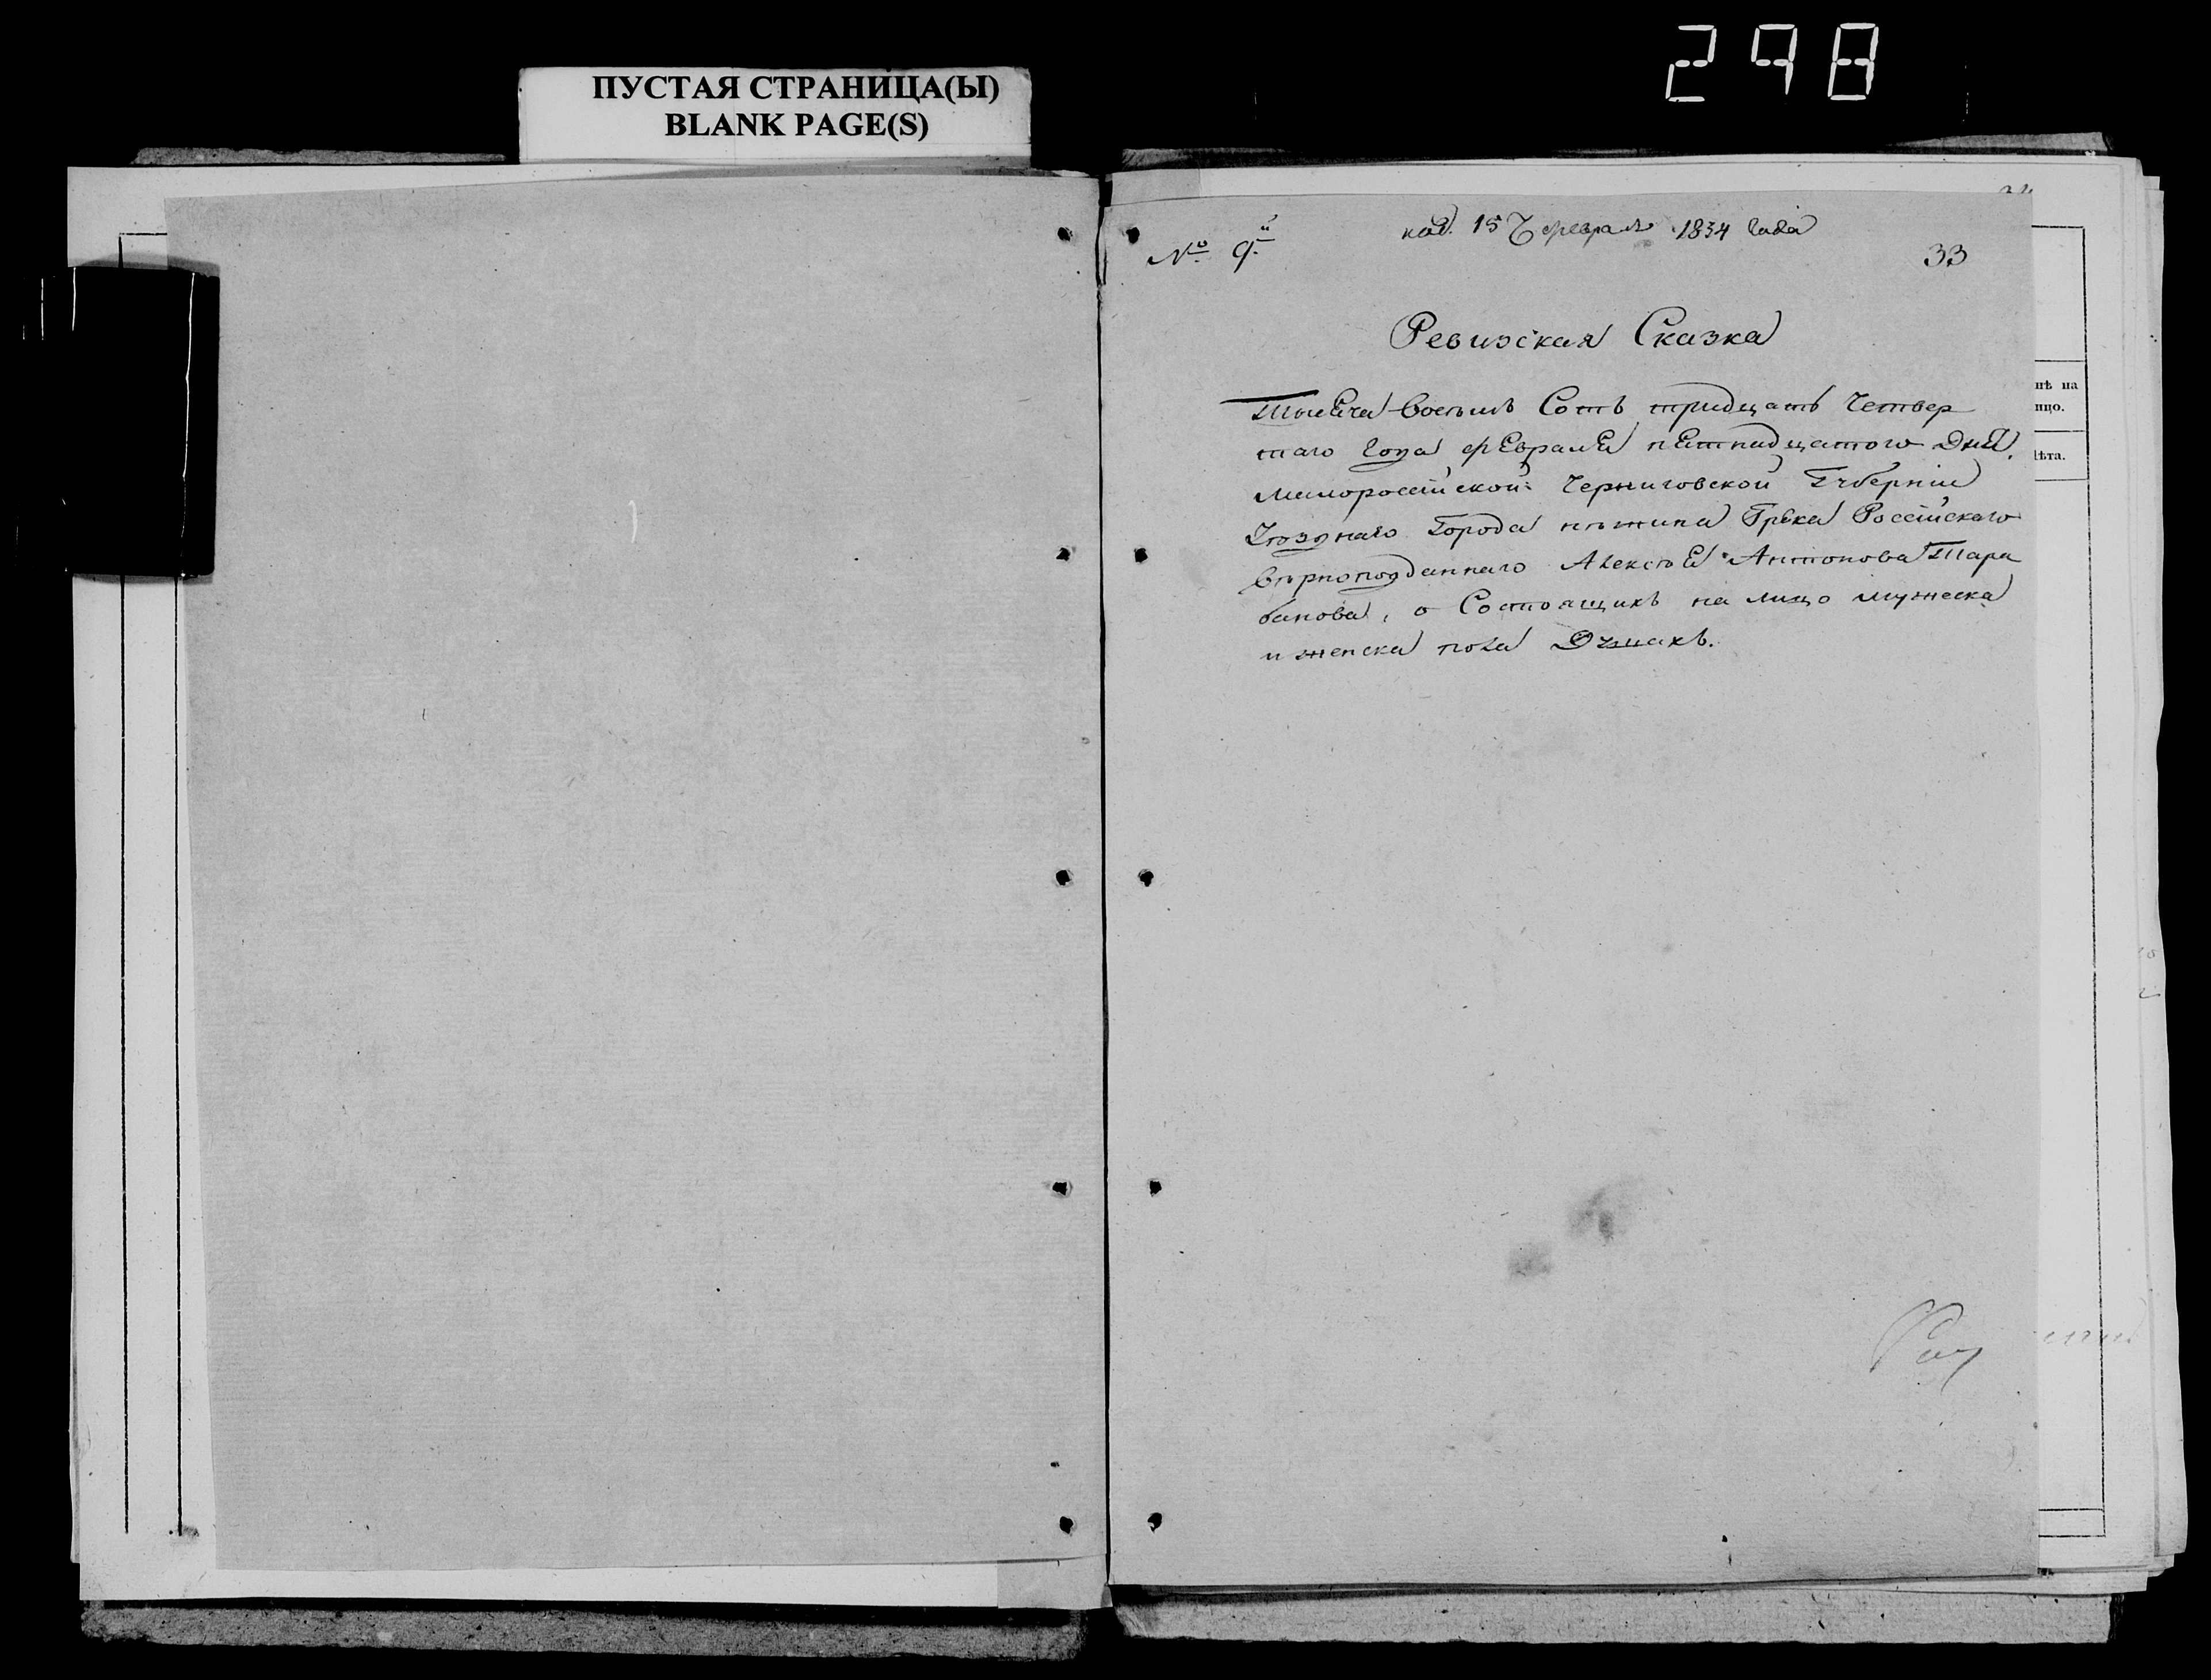 ПУСТАЯ СТРАНИЦА(Ы)
BLANK PAGE(S)
298
№ 9й
под. 15 февраля 1834 года
33
Ревизская Сказка
Тысяча восемь Сотъ тридцать Четвер
таго года февраля пятнадцатого Дня.
Малоросiйской Черниговской Губернiи
Уѣзднаго Города нѣжина Грека Росiйскаго
вѣрноподданнаго Алексѣя Антонова Тара
банова, о Состоящихъ на лицо мужеска
и женска пола Душахъ.
нѣ на
ицо.
лѣта.